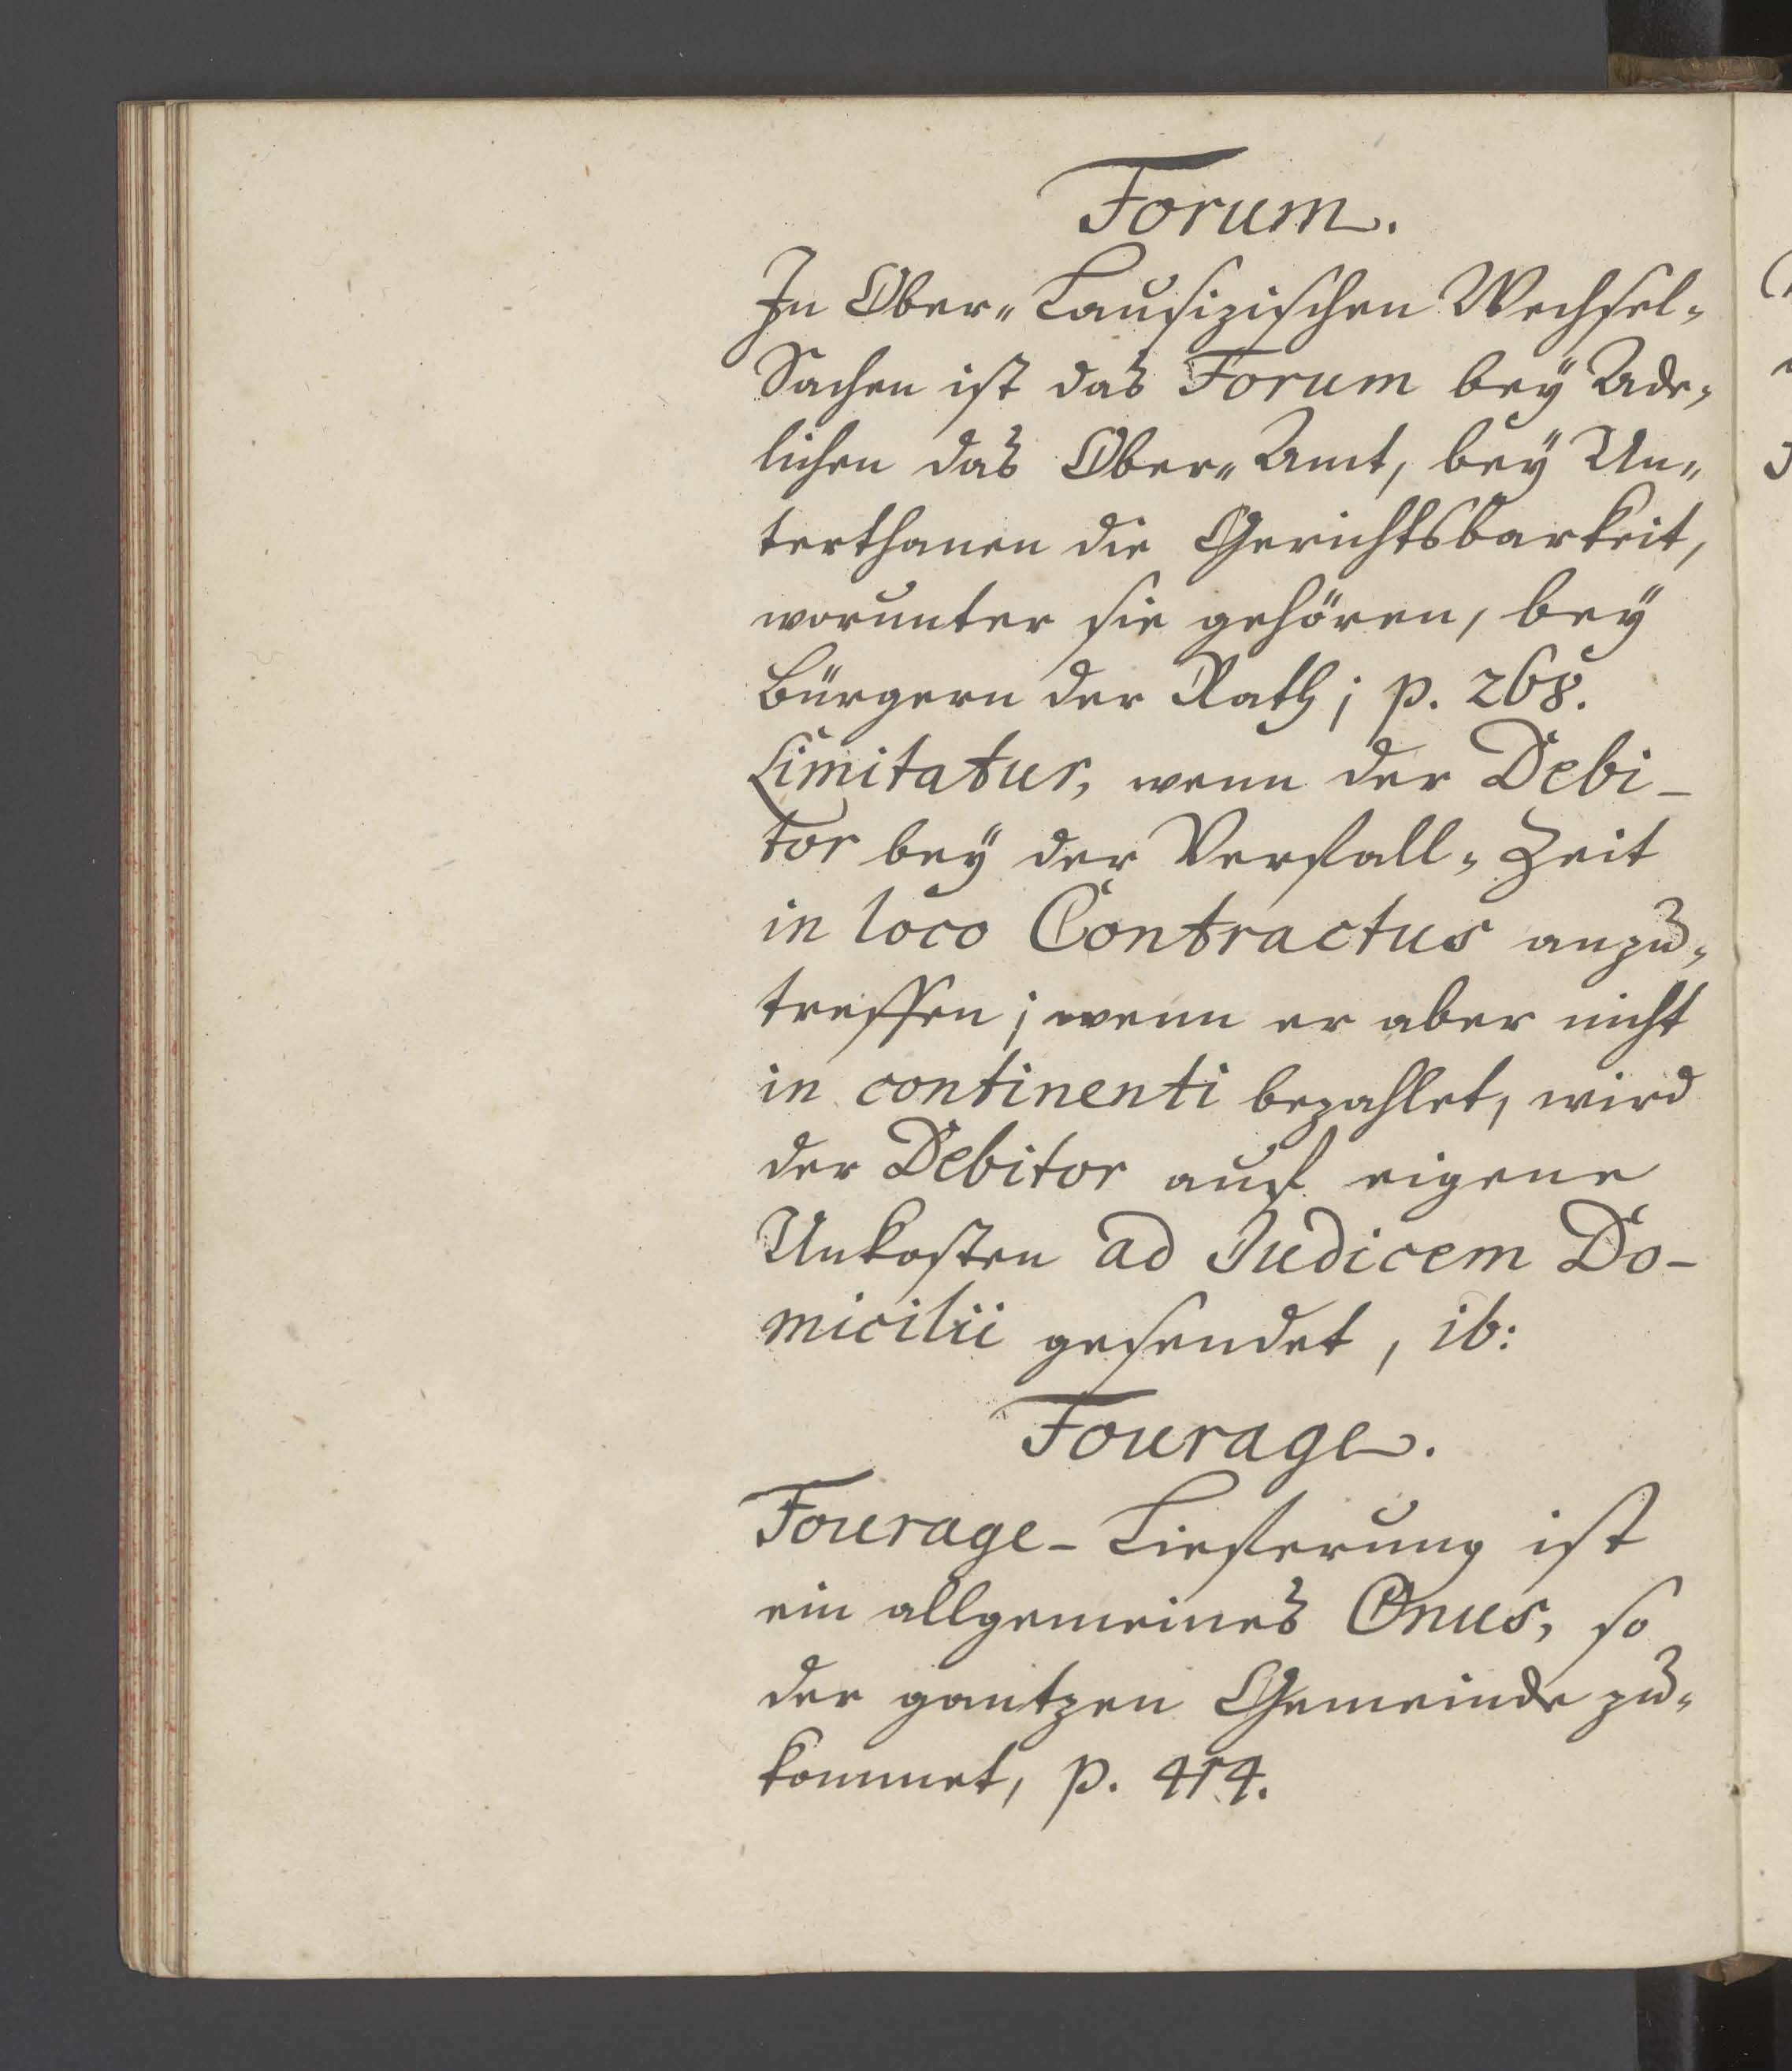 Forum.
In Ober-Lausizischen Wechsel-
Sachen ist das Forum bey Ade-
lichen das Ober-Amt, bey Un-
terthanen die Gerichtsbarkeit,
worunter sie gehören, bey
Bürgern der Rath; p. 268.
Limitatur, wenn der Debi-
tor bey der Verfall-Zeit
in loco Contractus anzu-
treffen; wenn er aber nicht
in continenti bezahlet, wird
der Debitor auf eigene
Unkosten ad Judicem Do-
micilii gesendet, ib:
Fourage.
Fourage-Lieferung ist
ein allgemeines Onus, so
der gantzen Gemeinde zu-
kommet, p. 414.